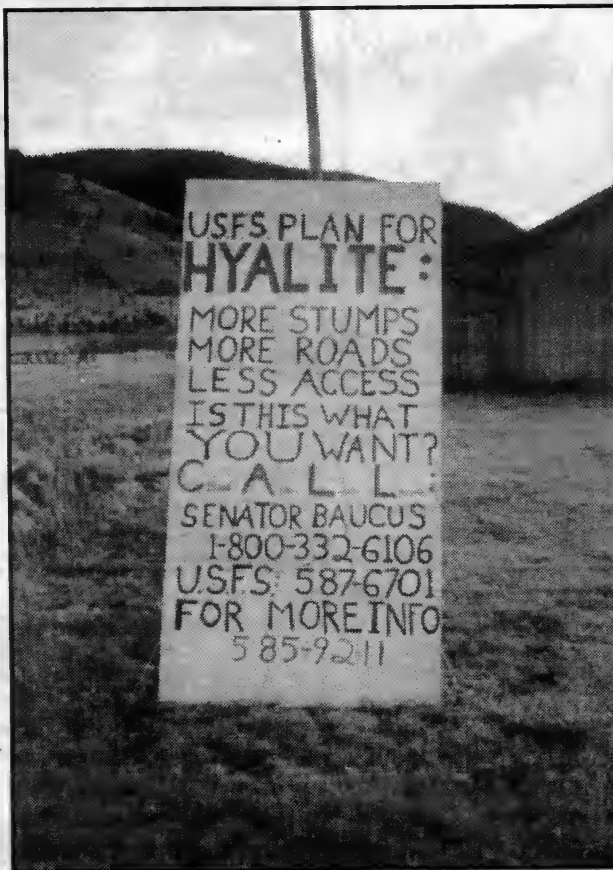 U.S.F.S. PLAN FOR
HYALITE:
MORE STUMPS
MORE ROADS
LESS ACCESS
IS THIS WHAT
YOU WANT?
C A L L :
SENATOR BAUCUS
1-800-332-6106
U.S.F.S. 587-6701
FOR MORE INFO
585-9211